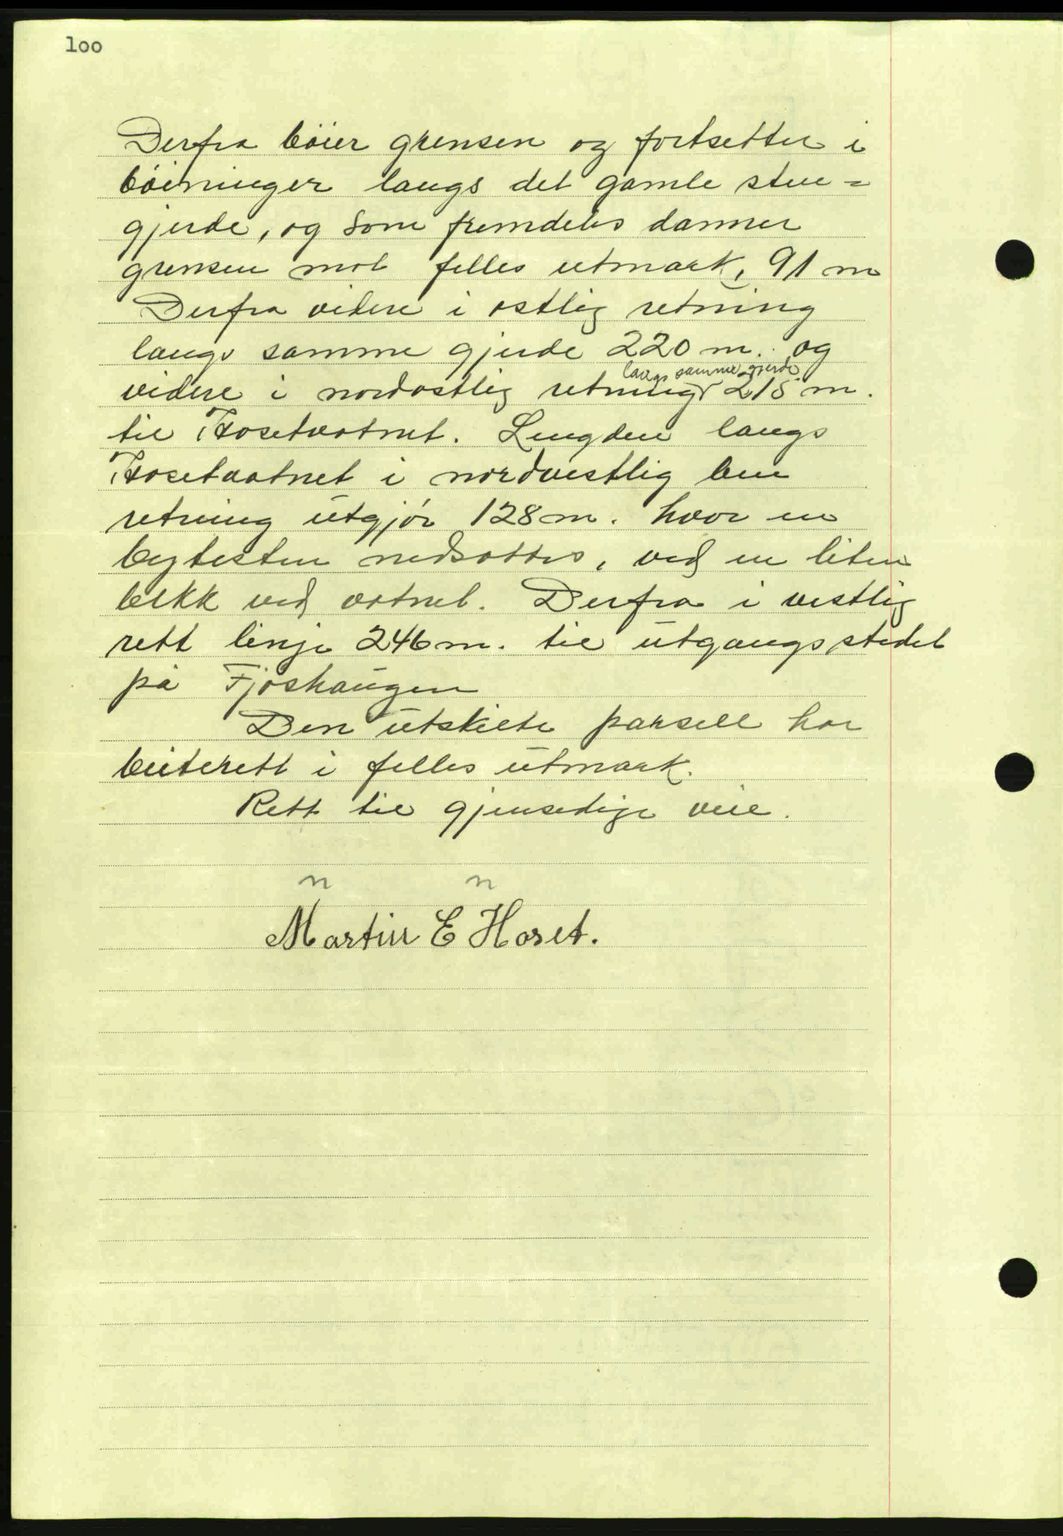 100
Derfra bøier grensen og fortsetter i
bøininger langs det gamle sten=
gjerde, og som fremdeles danner
grensen mot felles utmark, 91 m
Derfra videre i østlig retning
langs samme gjerde 220 m. og
langs samme gjerde
videre i nordøstlig retning 215 m.
til Hosetvatnet. Lengden langs
Hosetvatnet i nordvestlig ben
retning utgjør 128 m. hvor en
bytesten nedsattes, ved en liten
bekk ved vatnet. Derfra i vestlig
rett linje 246 m. til utgangsstedet
på Fjøshaugen
Den utskilte parsell har
beiterett i felles utmark.
Rett til gjensedige veie.
n n
Martin E Hoset.